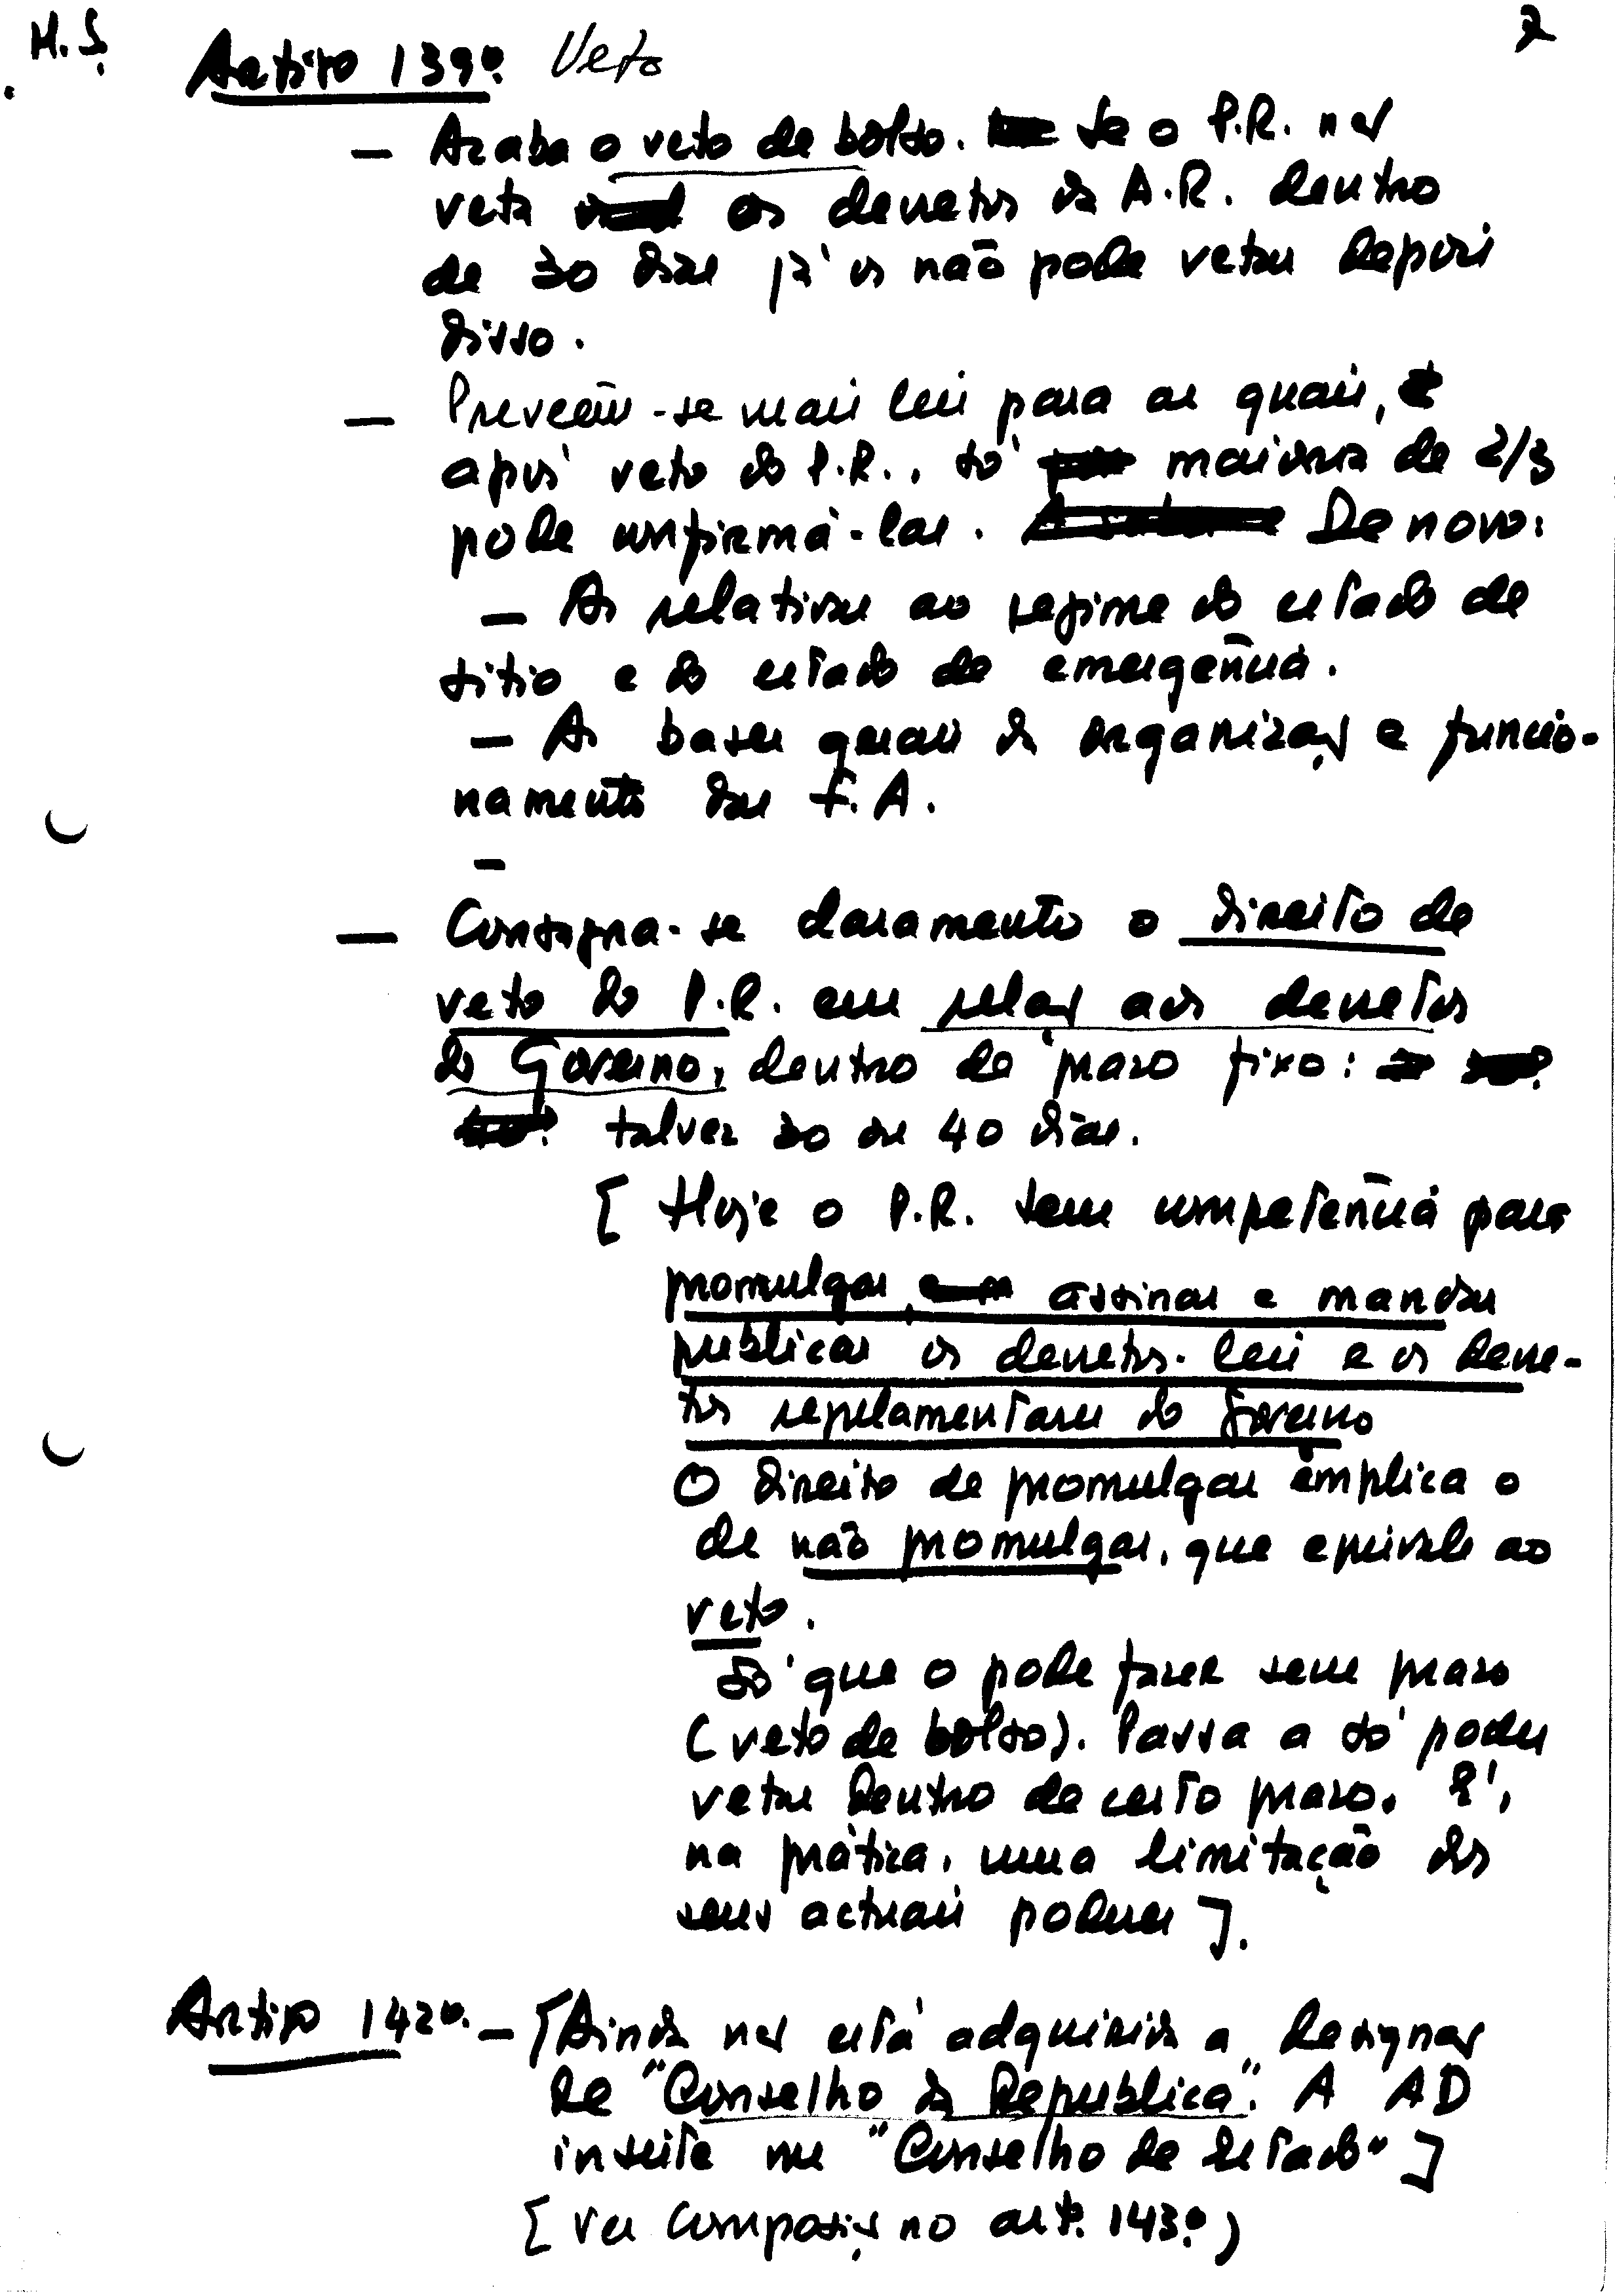 M.S. 2
Artigo 139º. Veto
— Acaba o veto de bolso. Se o P.R. não
veta os decretos da A.R. dentro
de 30 dias já os não pode vetar depois
disso.
— Prevêem-se mais leis para as quais,
após veto do P.R., só maioria de 2/3
pode confirmá-las. De novo:
— As relativas ao regime do estado de
sítio e do estado de emergência.
— As bases gerais da organização e funcio-
namento das F.A.
–
— Consagra-se claramente o direito de
veto do P.R. em relação aos decretos
do Governo, dentro de prazo fixo:
talvez 30 ou 40 dias.
[ Hoje o P.R. tem competência para
promulgar, assinar e mandar
publicar os decretos-leis e os decre-
tos regulamentares do Governo
O direito de promulgar implica o
de não promulgar, que equivale ao
veto.
Só que o pode fazer sem prazo
(veto de bolso). Passa a só poder
vetar dentro de certo prazo. É,
na prática, uma limitação dos
seus actuais poderes ].
Artigo 142º. — [Ainda não está adquirida a designação
de "Conselho da República". A AD
insiste em "Conselho de Estado" ]
[ Ver composição no artº. 143º.)